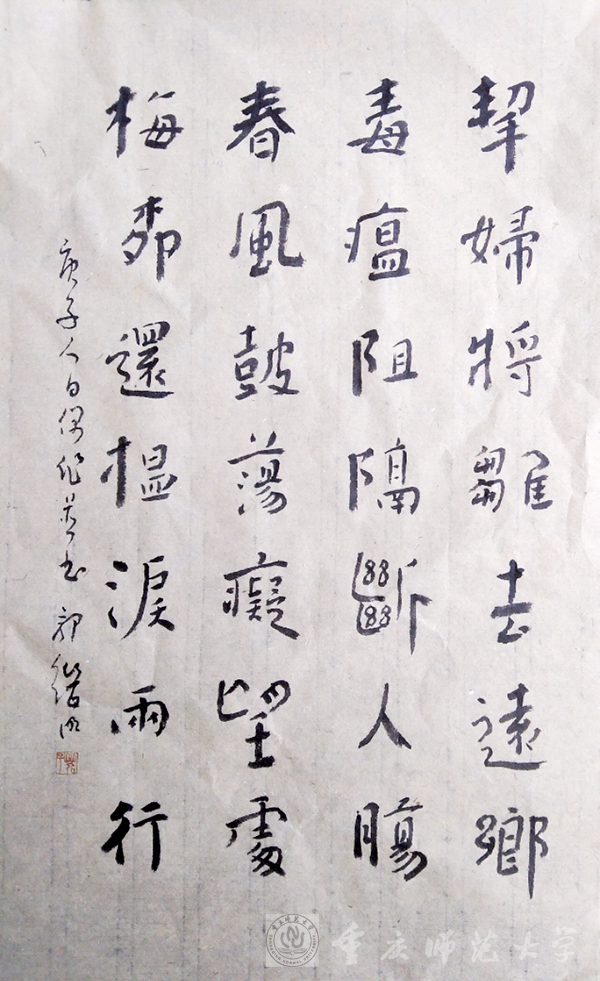 挈婦將雛去遠鄉
毒瘟阻隔斷人腸
春風鼓蕩癡望處
梅桺還揾淚兩行
庚子人日偶作並書 郭
重庆师范大学